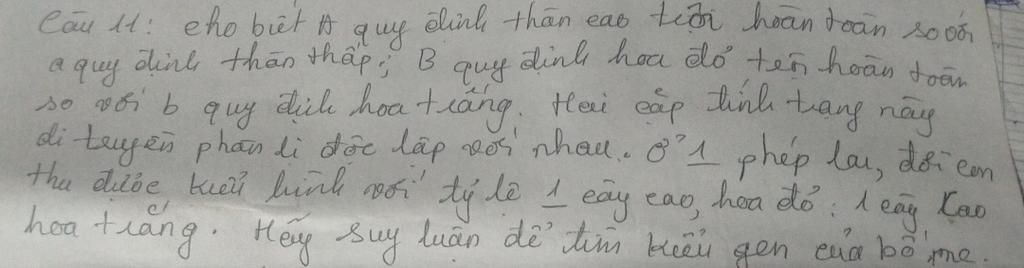 Câu 11: cho biết A quy định thân cao trội hoàn toàn so với
a quy định thân thấp; B quy định hoa đỏ trên hoàn toàn
so với b quy định hoa trắng. Hai cặp tính trạng này
di truyền phân li độc lập với nhau. Ở 1 phép lai, đời con
thu được kiểu hình với tỷ lệ 1 cây cao, hoa đỏ: 1 cây cao
hoa trắng. Hãy suy luận để tìm kiểu gen của bố mẹ.